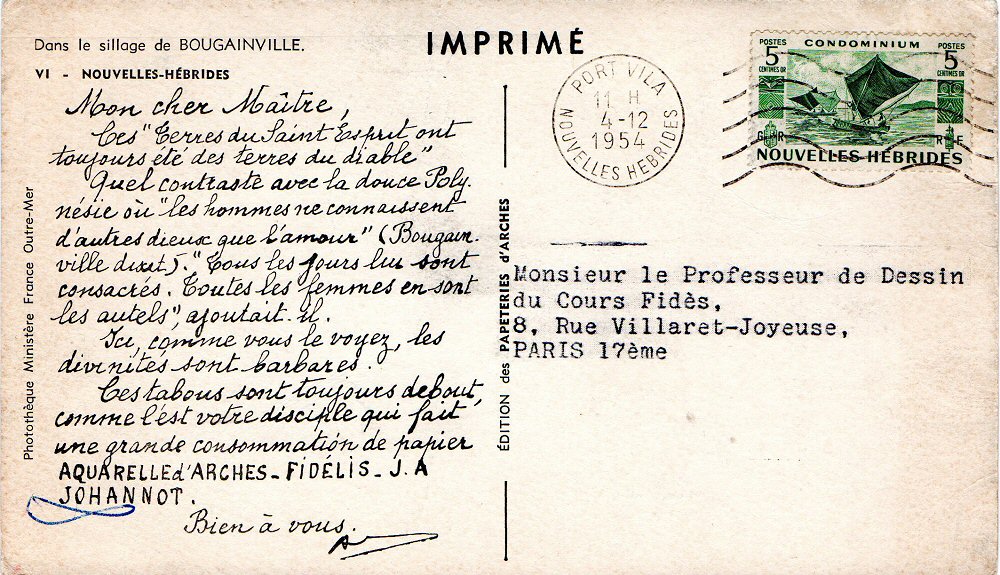 Dans le sillage de BOUGAINVILLE.
VI - NOUVELLES-HÉBRIDES
Mon cher Maître,
Ces "Terres du Saint Esprit ont
toujours été des terres du diable"
Quel contraste avec la douce Poly.
nésie où "les hommes ne connaissent
d'autres dieux que l'amour" (Bougain.
ville dixit). "Tous les jours lui sont
consacrés. Toutes les femmes en sont
les autels", ajoutait-il.
Ici, comme vous le voyez, les
divinités sont barbares.
Ces tabous sont toujours debout,
comme l'est votre disciple qui fait
une grande consommation de papier
AQUARELLE d'ARCHES - FIDELIS - J.A
JOHANNOT.
Bien à vous.
Photothèque Ministère France Outre-Mer
ÉDITION des PAPETERIES d'ARCHES
IMPRIMÉ
PORT VILA
11 H
4-12
1954
NOUVELLES HEBRIDES
POSTES
5
CENTIMES OR
CONDOMINIUM
POSTES
5
CENTIMES OR
R F
NOUVELLES-HÉBRIDES
Monsieur le Professeur de Dessin
du Cours Fidès,
8, Rue Villaret-Joyeuse,
PARIS 17ème